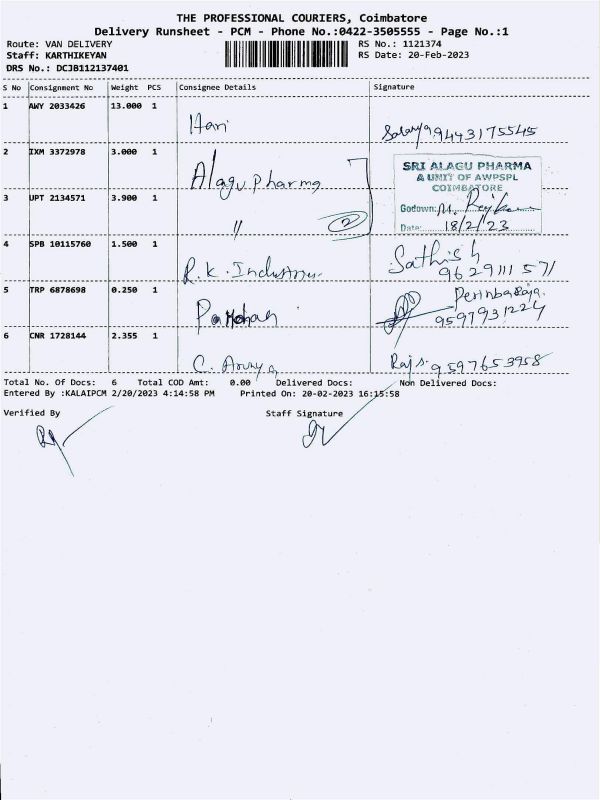 THE PROFESSIONAL COURIERS, Coimbatore
Delivery Runsheet - PCM - Phone No.:0422-3505555 - Page No.:1
Route: VAN DELIVERY RS No.: 1121374
Staff: KARTHIKEYAN RS Date: 20-Feb-2023
DRS No.: DCJB112137401
S No Consignment No Weight PCS Consignee Details Signature
1 AWY 2033426 13.000 1
Hari 9443175545
2 IXM 3372978 3.000 1
Alagu pharma
SRI ALAGU PHARMA
& UNIT OF AWPSPL
COIMBATORE
3 UPT 2134571 3.900 1
" 2
Godown: M.
Date: 18/2/23
4 SPB 10115760 1.500 1
R.K. Sathish
9629111571
5 TRP 6878698 0.250 1
9597931224
6 CNR 1728144 2.355 1
C. Raj s. 9597653958
Total No. Of Docs: 6 Total COD Amt: 0.00 Delivered Docs: Non Delivered Docs:
Entered By :KALAIPCM 2/20/2023 4:14:58 PM Printed On: 20-02-2023 16:15:58
Verified By Staff Signature